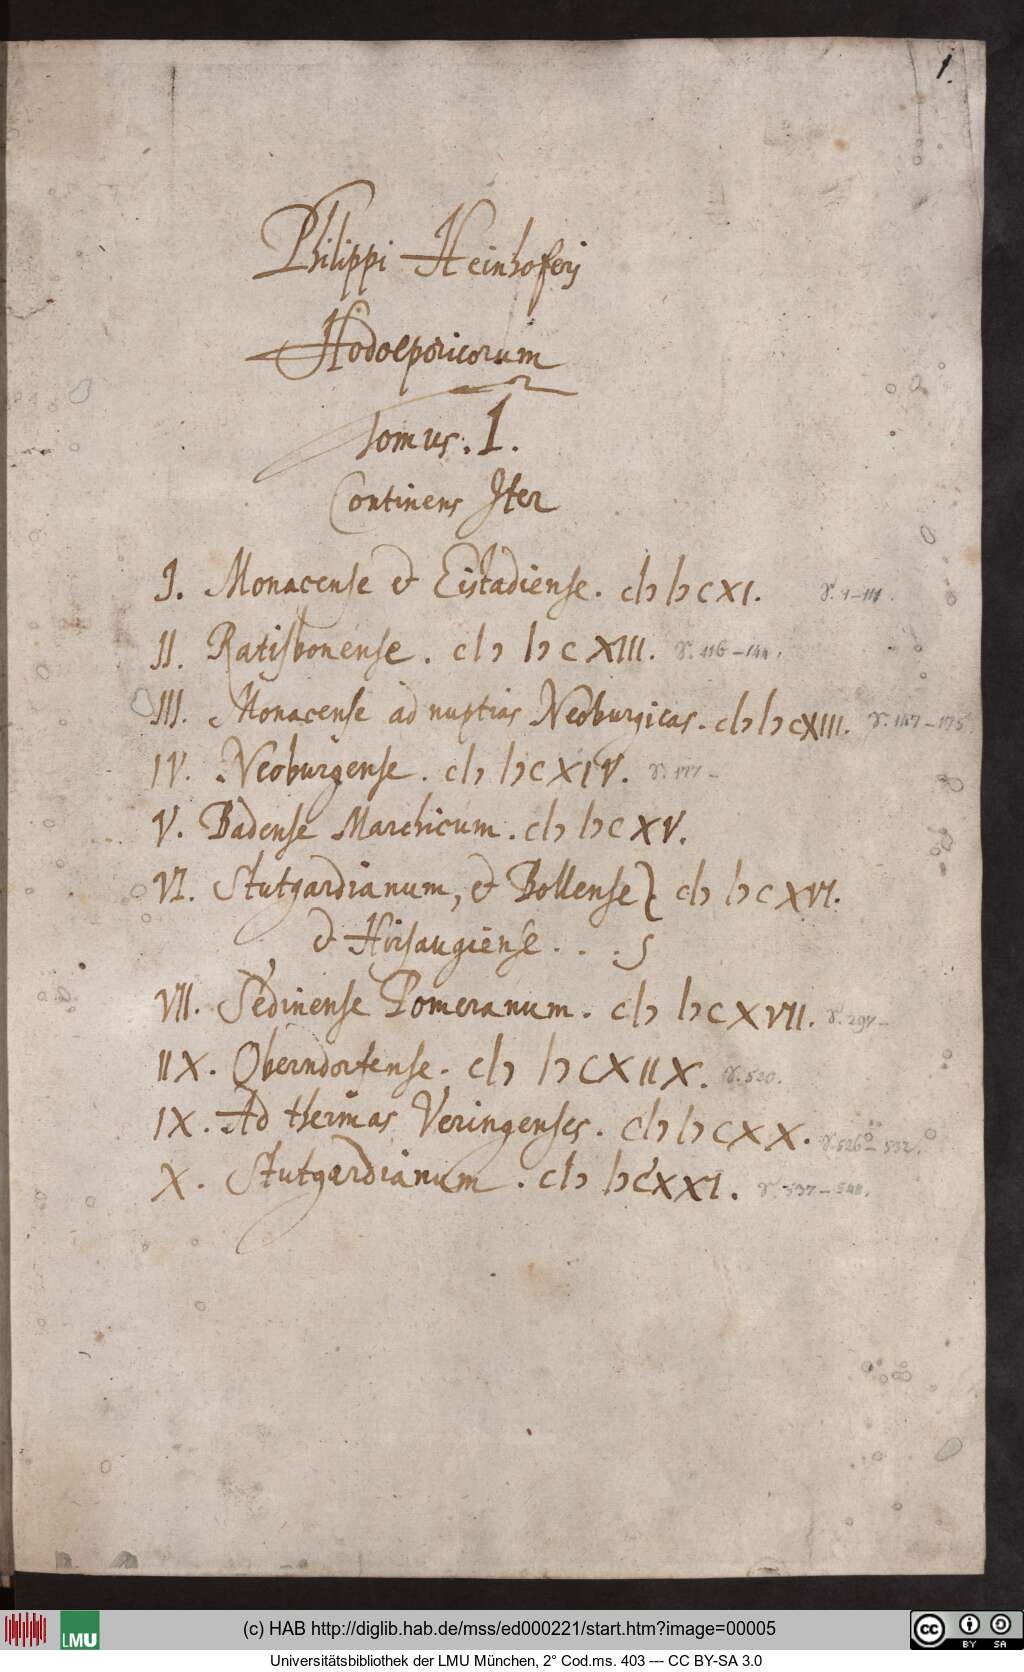 1.
Philippi Heinhoferj
Hodoeporicorum
Tomus. I.
Continens Iter
I. Monacense et Eistadiense. cIↃ IↃ c XI. 
II. Ratisbonense. cIↃ IↃ c XIII. γ. 116-144.
III. Monacense ad nuptias Neoburgicas. cIↃ IↃ cXIII. γ. 147-175.
IV. Neoburgense. cIↃ IↃ c XIV. γ. 177-
V. Badense Marchicum. cIↃ IↃ c XV.
VI. Stutgardianum, et Bollense } cIↃ IↃ c XVI.
et Hirsaugiense . . .
VII. Sedinense Pomeranum. cIↃ IↃ c XVII. γ. 297-
IIX. Oberndorfense. cIↃ IↃ c X IIX. γ. 520.
IX. Ad thermas Veringenses. cIↃ IↃ c XX. γ. 526-532.
X. Stutgardianum. cIↃ IↃ c XXI. γ. 537-548.
(c) HAB http://diglib.hab.de/mss/ed000221/start.htm?image=00005
LMU
cc BY SA
Universitätsbibliothek der LMU München, 2° Cod.ms. 403 --- CC BY-SA 3.0